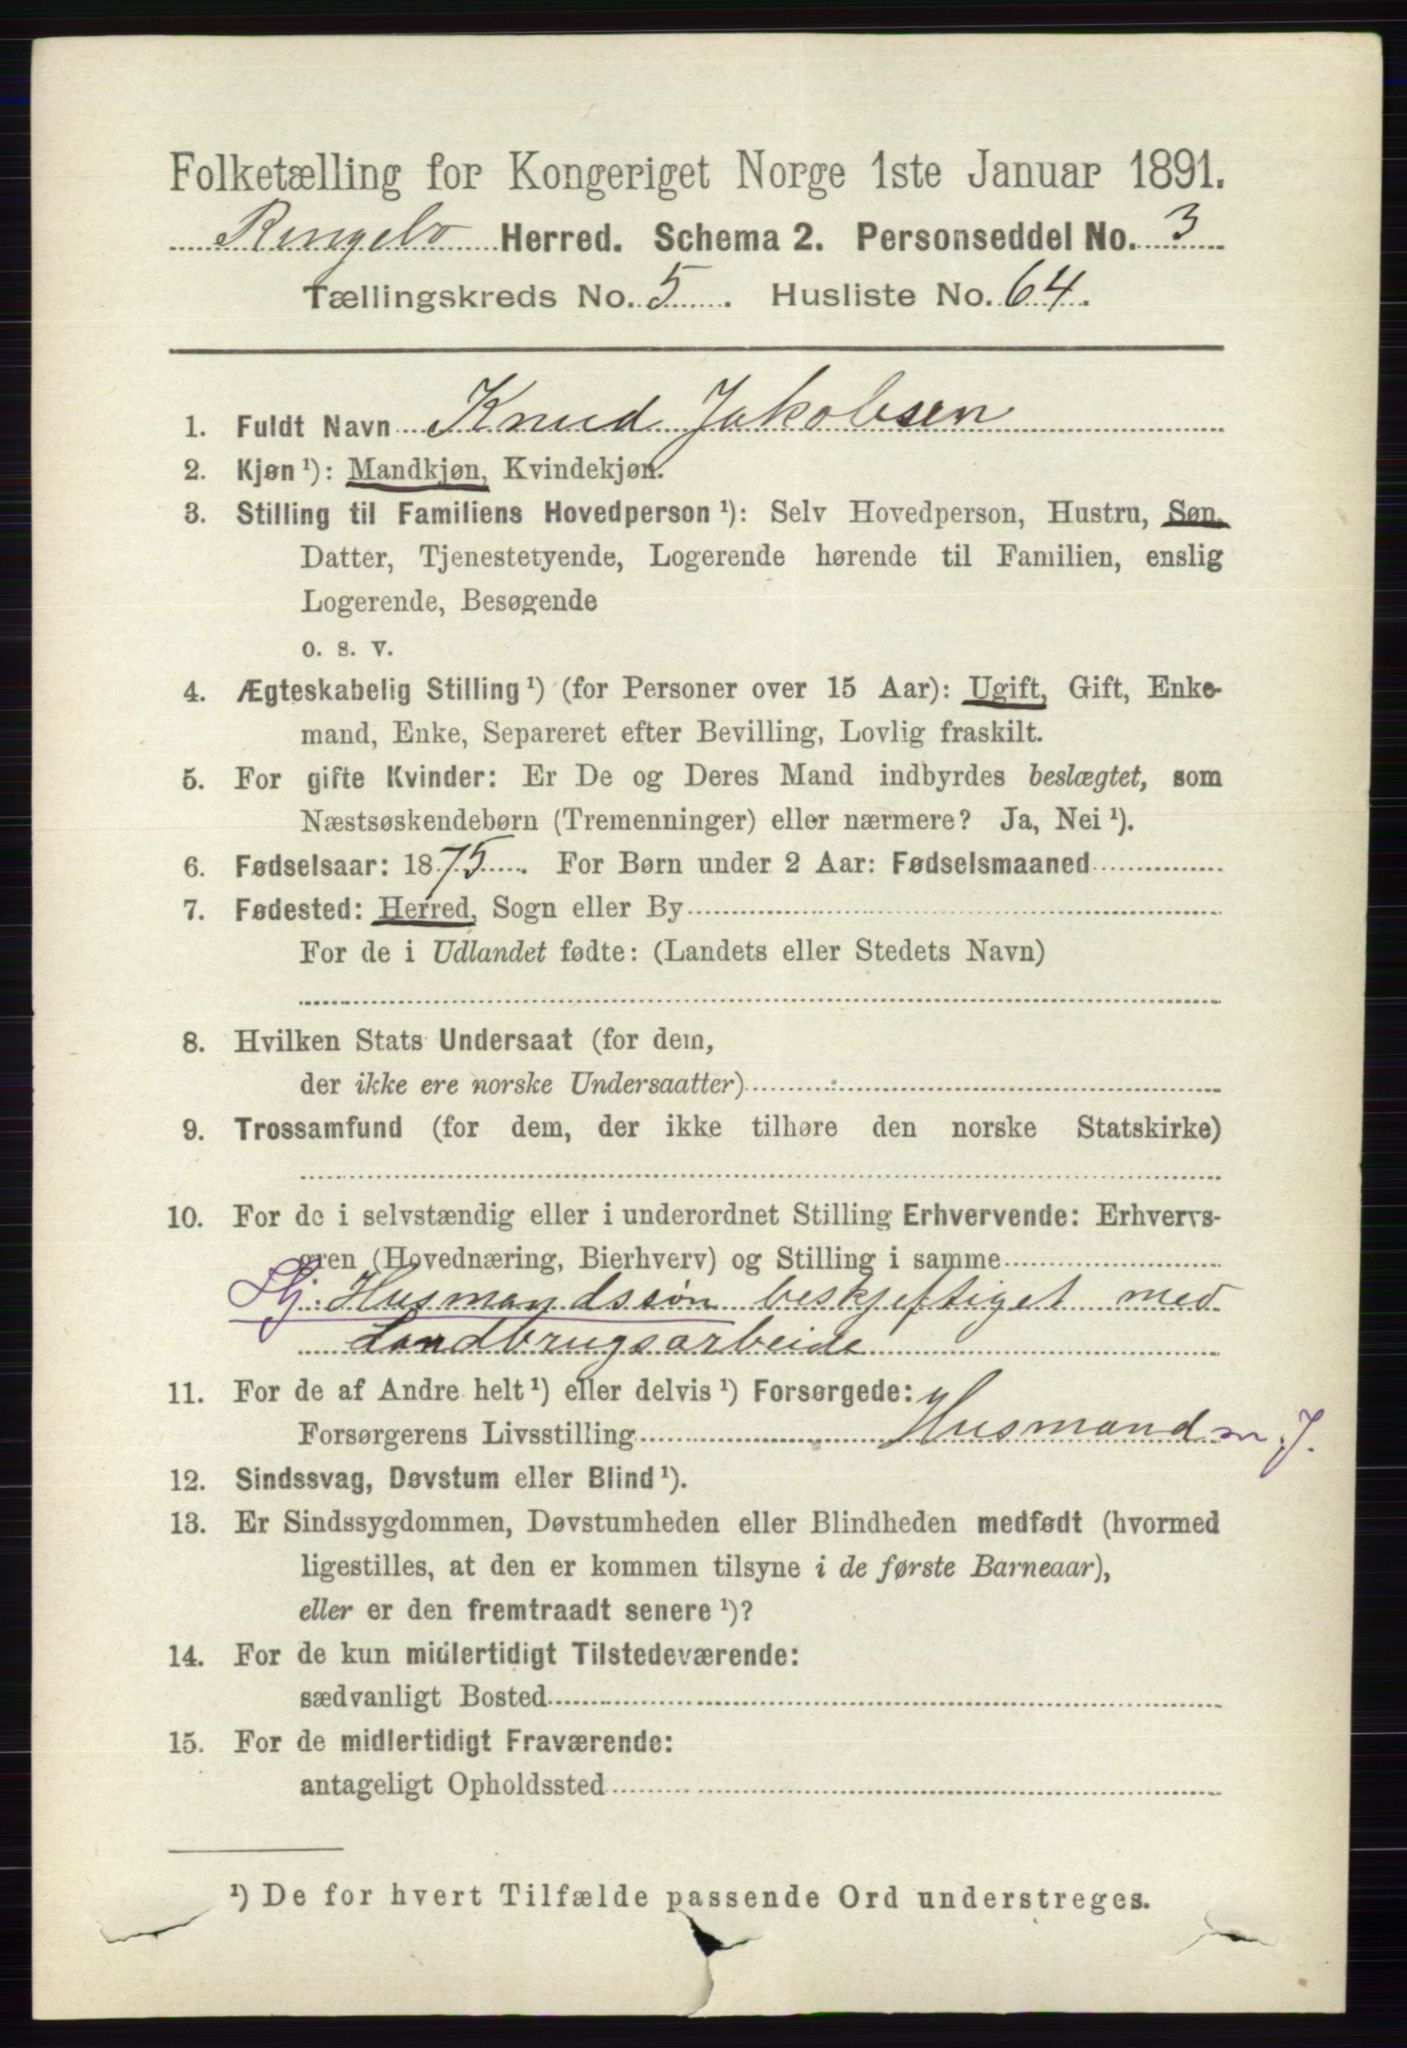 Folketælling for Kongeriget Norge 1ste Januar 1891.
Ringebo Herred. Schema 2. Personseddel No. 3
Tællingskreds No. 5. Husliste No. 64.
1. Fuldt Navn Knud Jakobsen
2. Kjøn ¹): Mandkjøn, Kvindekjøn.
3. Stilling til Familiens Hovedperson ¹): Selv Hovedperson, Hustru, Søn,
Datter, Tjenestetyende, Logerende hørende til Familien, enslig
Logerende, Besøgende
o. s. v.
4. Ægteskabelig Stilling ¹) (for Personer over 15 Aar): Ugift, Gift, Enke-
mand, Enke, Separeret efter Bevilling, Lovlig fraskilt.
5. For gifte Kvinder: Er De og Deres Mand indbyrdes beslægtet, som
Næstsøskendebørn (Tremenninger) eller nærmere? Ja, Nei ¹).
6. Fødselsaar: 1875. For Børn under 2 Aar: Fødselsmaaned
7. Fødested: Herred, Sogn eller By
For de i Udlandet fødte: (Landets eller Stedets Navn)
8. Hvilken Stats Undersaat (for dem,
der ikke ere norske Undersaatter)
9. Trossamfund (for dem, der ikke tilhøre den norske Statskirke)
10. For de i selvstændig eller i underordnet Stilling Erhvervende: Erhvervs-
gren (Hovednæring, Bierhverv) og Stilling i samme
Hj. Husmandssøn beskjeftiget med
Landbrugsarbeide
11. For de af Andre helt ¹) eller delvis ¹) Forsørgede:
Forsørgerens Livsstilling Husmand m. J.
12. Sindssvag, Døvstum eller Blind ¹).
13. Er Sindssygdommen, Døvstumheden eller Blindheden medfødt (hvormed
ligestilles, at den er kommen tilsyne i de første Barneaar),
eller er den fremtraadt senere ¹)?
14. For de kun midlertidigt Tilstedeværende:
sædvanligt Bosted
15. For de midlertidigt Fraværende:
antageligt Opholdssted
¹) De for hvert Tilfælde passende Ord understreges.